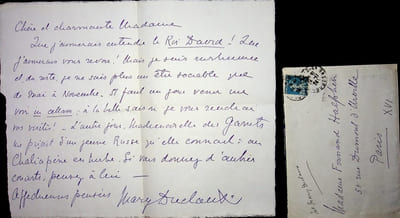 Chère et charmante Madame
Que j'aimerais entendre le Roi David ! Que
j'aimerais vous revoir ! Mais je suis enrhumée
et du reste, je ne suis plus un être sociable que
de Mai à Novembre. Il faut un jour venir me
voir in cellam : à la belle saison je vous rendrai
ma visite ! — L'autre jour, Mademoiselle des Garets
me priait d'un jeune Russe qu'elle connait : un
Chaliapine en herbe. Si vous donnez d'autres
concerts, pensez à lui —
Affectueuses pensées Mary Duclaux
Madame Fernand Halphen
Rue Dumont d'Urville
Paris
XVI